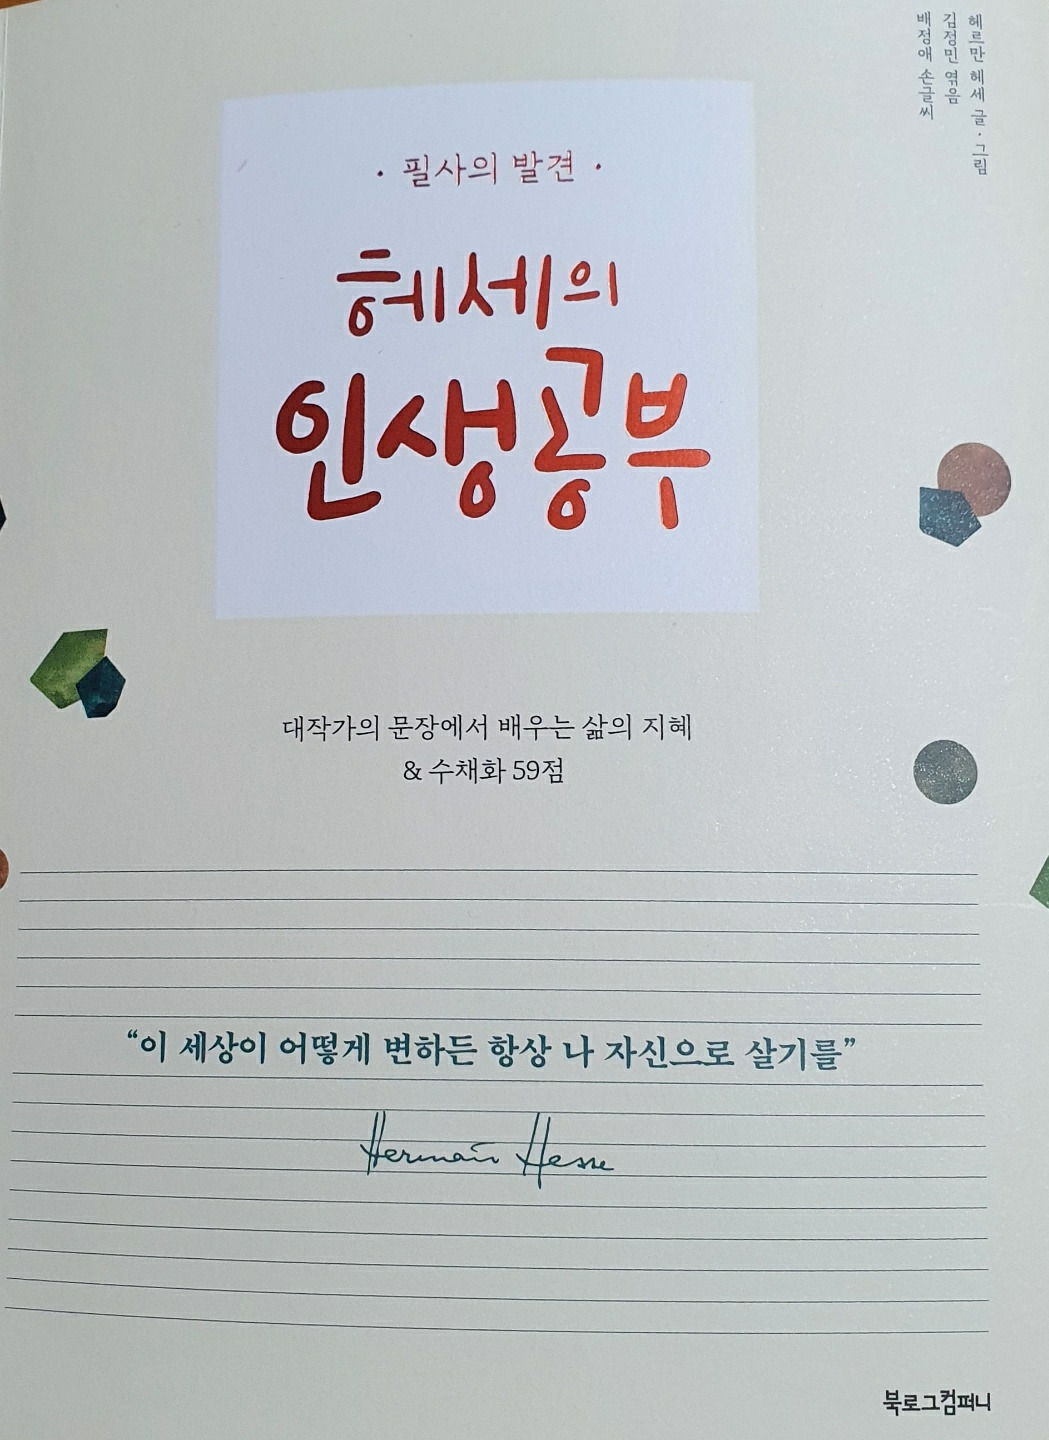 헤르만 헤세 글·그림
김정민 엮음
배정애 손글씨
· 필사의 발견 ·
헤세의
인생공부
대작가의 문장에서 배우는 삶의 지혜
& 수채화 59점
“이 세상이 어떻게 변하든 항상 나 자신으로 살기를”
Hermann Hesse
북로그컴퍼니